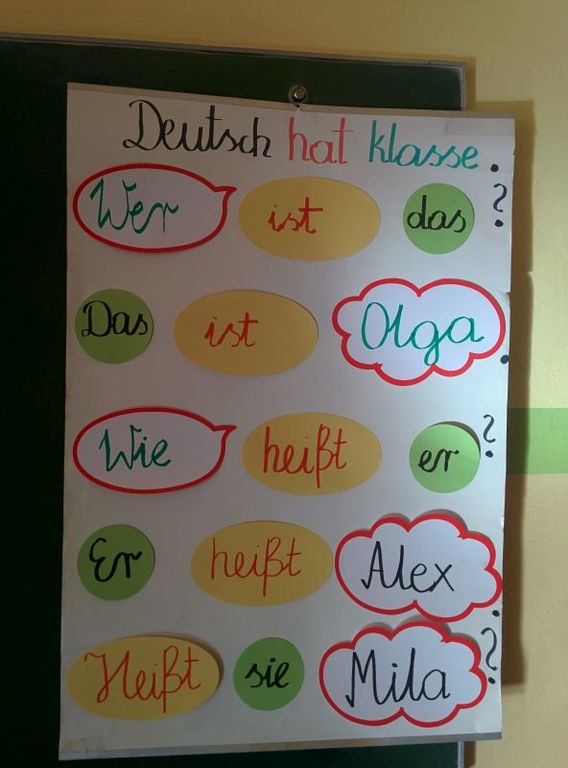 Deutsch hat klasse.
Wer ist das?
Das ist Olga.
Wie heißt er?
Er heißt Alex.
Heißt sie Mila?